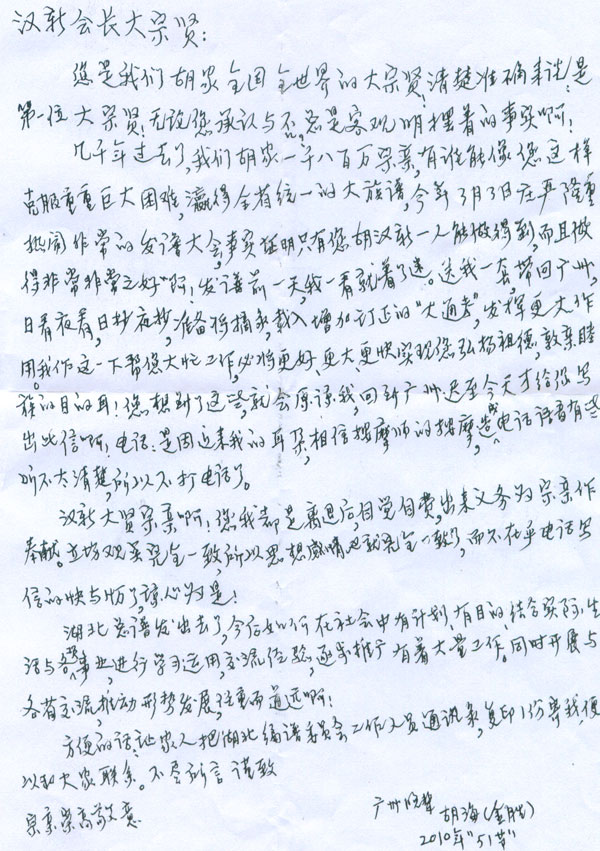 汉新会长大宗贤:
您是我们胡家全国全世界的大宗贤!清楚准确来说:是
第一位大宗贤!无论您承认与否,总是客观明摆着的事实啊!
几千年过去了,我们胡家一千八百万宗亲,有谁能像您这样
克服重重巨大困难,瀛得全省统一的大族谱,今年3月3日庄严隆重
热闹非常的发谱大会,事实证明只有您胡汉新一人能做得到,而且做
得非常非常之好"阿!发谱前一天,我一看就着了迷。送我一套,带回广州,
日看夜看,日抄夜抄,准备将摘录,载入增加订正的"大通考",发挥更大作
用。我作这一下帮您大忙工作,必将更好、更大、更快实现您弘扬祖德,敦亲睦
族的目的耳!您想到了这些,就会原谅我,回到广州迟至今天才给您写
出此信啊!电话:是因近来我的耳朵,相信按摩师的按摩,造成电话语音有些
听不大清楚,所以不打电话了。
汉新大贤宗亲啊!您我都是离退后,自觉自费,出来义务为宗亲作
奉献。立场观点完全一致,所以思想感情也就完全一致了,而不在乎电话写
信的快与慢了,谅心为是!
湖北总谱发出去了,今后如何在社会中有计划、有目的,结合实际,生
活与各种事业,进行学习运用,交流经验,逐步推广有着大量工作。同时开展与
各省交流,推动形势发展,任重而道远啊!
方便的话,让家人把湖北编谱委员会工作人员通讯录,复印1份寄我,便
以和大家联系。不尽所言 谨致
宗亲崇高敬意
广州 胡海(金胜)
2010年"51节"